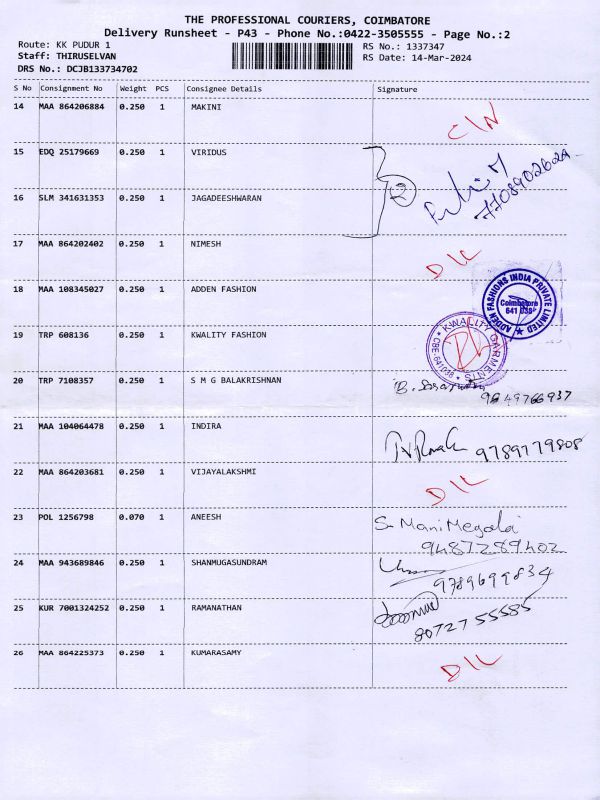 THE PROFESSIONAL COURIERS, COIMBATORE
Delivery Runsheet - P43 - Phone No.:0422-3505555 - Page No.:2
Route: KK PUDUR 1 RS No.: 1337347
Staff: THIRUSELVAN RS Date: 14-Mar-2024
DRS No.: DCJB133734702
S No Consignment No Weight PCS Consignee Details Signature
14 MAA 864206884 0.250 1 MAKINI
15 EDQ 25179669 0.250 1 VIRIDUS
2
16 SLM 341631353 0.250 1 JAGADEESHWARAN
17 MAA 864202402 0.250 1 NIMESH
D/L
18 MAA 108345027 0.250 1 ADDEN FASHION
ADDEN FASHIONS INDIA PRIVATE LIMITED
Coimbatore
641 038
19 TRP 608136 0.250 1 KWALITY FASHION
KWALITY GARMENTS
CBE-641038
20 TRP 7108357 0.250 1 S M G BALAKRISHNAN
21 MAA 104064478 0.250 1 INDIRA
9789779808
22 MAA 864203681 0.250 1 VIJAYALAKSHMI
D/L
23 POL 1256798 0.070 1 ANEESH
S. ManiMegalai
9487289402
24 MAA 943689846 0.250 1 SHANMUGASUNDRAM
9789699834
25 KUR 7001324252 0.250 1 RAMANATHAN
8072755585
26 MAA 864225373 0.250 1 KUMARASAMY
D/L